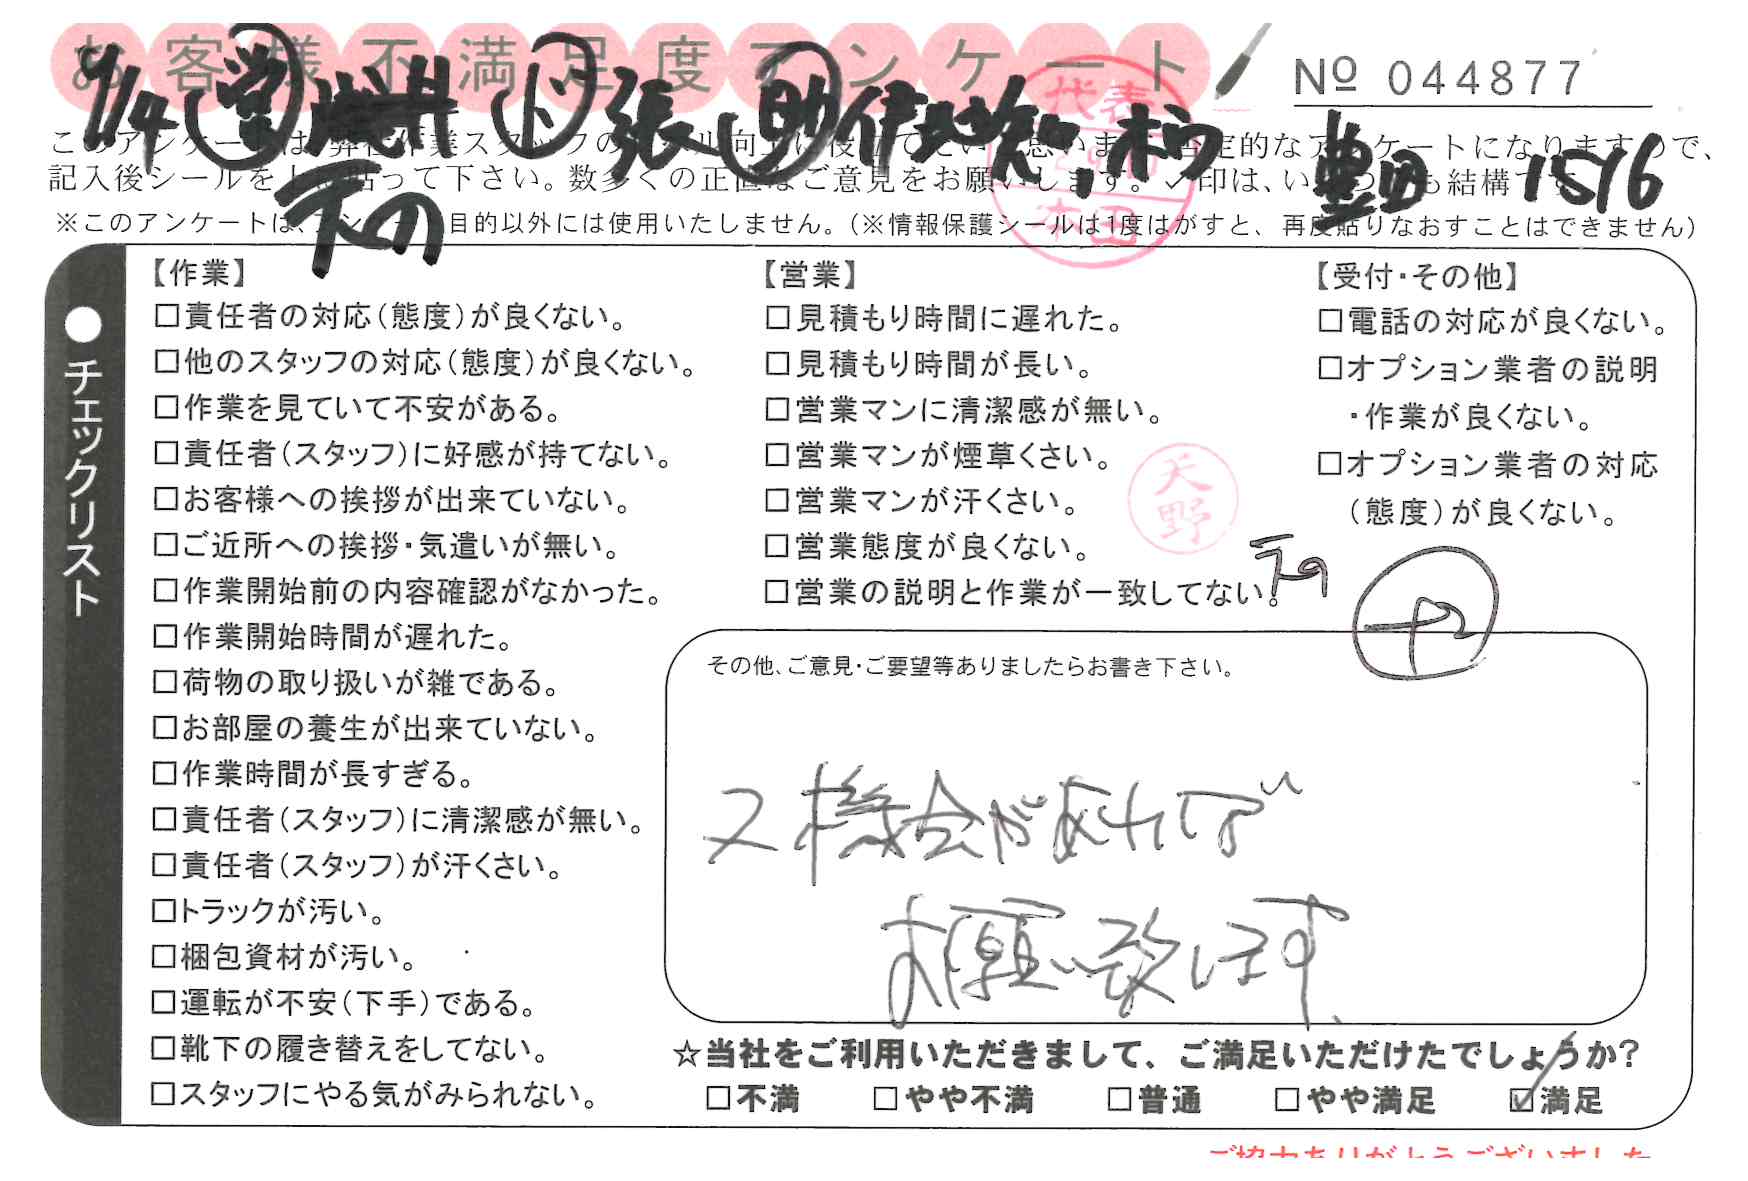 お客様不満足度アンケート
№ 044877
9/14
ト 張 助
豊田 1516
天の
記入後シールを上に貼って下さい。数多くの正直なご意見をお願いします。✓印は、いくつでも結構です
※このアンケートは、アンケート目的以外には使用いたしません。(※情報保護シールは1度はがすと、再度貼りなおすことはできません)
代表
本田
●チェックリスト
【作業】
□責任者の対応(態度)が良くない。
□他のスタッフの対応(態度)が良くない。
□作業を見ていて不安がある。
□責任者(スタッフ)に好感が持てない。
□お客様への挨拶が出来ていない。
□ご近所への挨拶・気遣いが無い。
□作業開始前の内容確認がなかった。
□作業開始時間が遅れた。
□荷物の取り扱いが雑である。
□お部屋の養生が出来ていない。
□作業時間が長すぎる。
□責任者(スタッフ)に清潔感が無い。
□責任者(スタッフ)が汗くさい。
□トラックが汚い。
□梱包資材が汚い。
□運転が不安(下手)である。
□靴下の履き替えをしてない。
□スタッフにやる気がみられない。
【営業】
□見積もり時間に遅れた。
□見積もり時間が長い。
□営業マンに清潔感が無い。
□営業マンが煙草くさい。
□営業マンが汗くさい。
□営業態度が良くない。
□営業の説明と作業が一致してない。
天野
天の
【受付・その他】
□電話の対応が良くない。
□オプション業者の説明
・作業が良くない。
□オプション業者の対応
(態度)が良くない。
その他、ご意見・ご要望等ありましたらお書き下さい。
又機会があれば
お願い致します。
☆当社をご利用いただきまして、ご満足いただけたでしょうか?
□不満 □やや不満 □普通 □やや満足 ☑満足
ご協力ありがとうございました